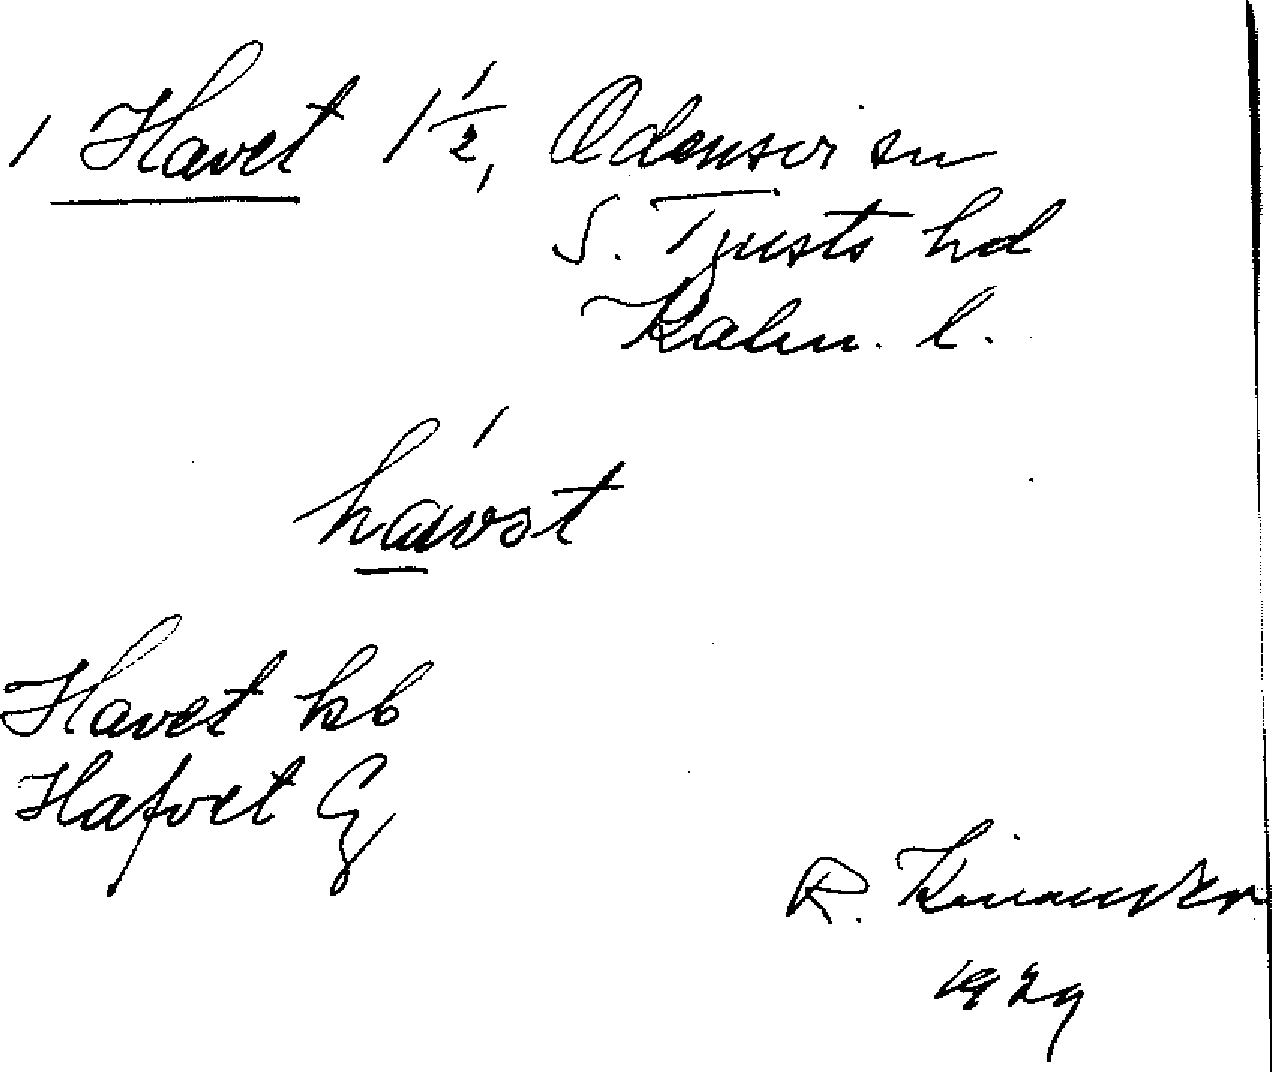 1 Havet 1 1/2, Odensvi sn
S. Tjusts hd
Kalm. l.
hávət
Havet kb
Hafvet Ek
R. Kinander
1929